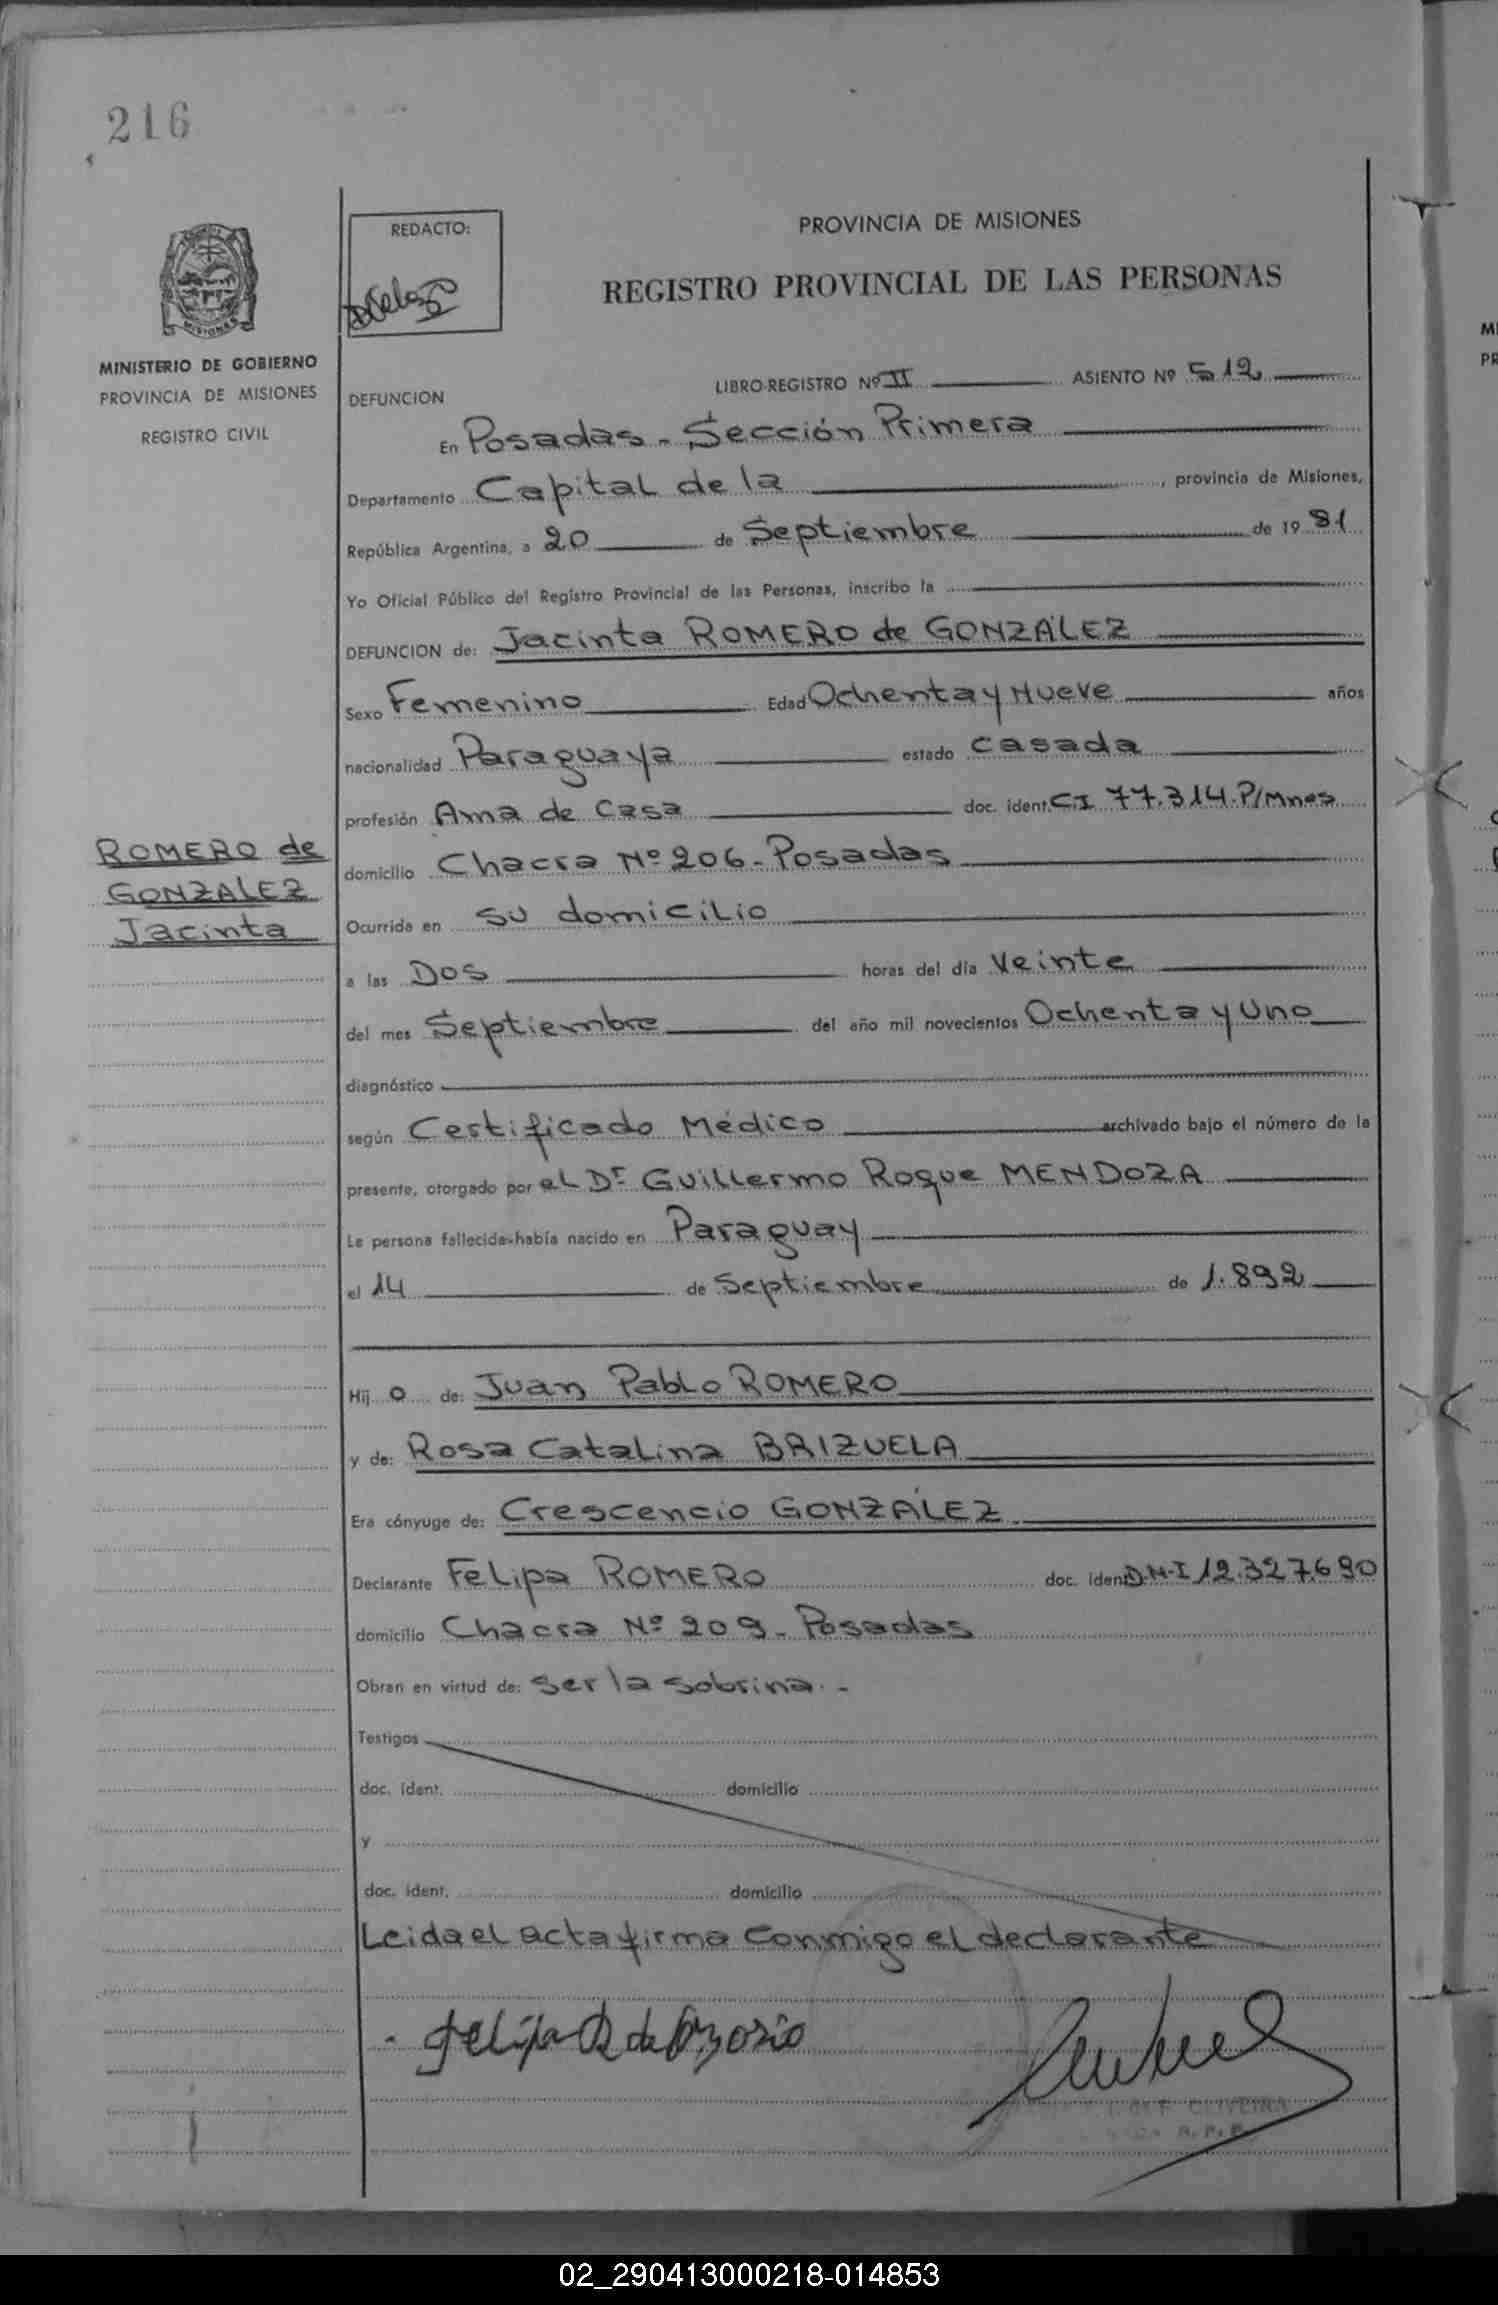 216
REDACTO:
PROVINCIA DE MISIONES
REGISTRO PROVINCIAL DE LAS PERSONAS
MISIONES
MINISTERIO DE GOBIERNO
PROVINCIA DE MISIONES
REGISTRO CIVIL
DEFUNCION LIBRO-REGISTRO Nº II ASIENTO Nº 512
En Posadas - Sección Primera
Departamento Capital de la , provincia de Misiones,
República Argentina, a 20 de Septiembre de 19 81
Yo Oficial Público del Registro Provincial de las Personas, inscribo la
DEFUNCION de: Jacinta ROMERO de GONZÁLEZ
Sexo Femenino Edad Ochenta y Nueve años
nacionalidad Paraguaya estado casada
profesión Ama de Casa doc. ident. C.I 77.314.P/Mnes
ROMERO de
GONZALEZ
Jacinta
domicilio Chacra Nº 206 - Posadas
Ocurrida en su domicilio
a las Dos horas del día Veinte
del mes Septiembre del año mil novecientos Ochenta y Uno
diagnóstico
según Certificado Médico archivado bajo el número de la
presente, otorgado por el Dr Guillermo Roque MENDOZA
La persona fallecida-había nacido en Paraguay
el 14 de Septiembre de 1.892
Hij o de: Juan Pablo ROMERO
y de: Rosa Catalina BRIZUELA
Era cónyuge de: Crescencio GONZÁLEZ
Declarante Felipa ROMERO doc. iden D.N.I 12.327.690
domicilio Chacra Nº 209 - Posadas
Obran en virtud de: ser la sobrina. -
Testigos
doc. ident. domicilio
y
doc. ident. domicilio
Leida el acta firma conmigo el declarante
Felipa R de Ozorio
OLIVEIRA
02_290413000218-014853